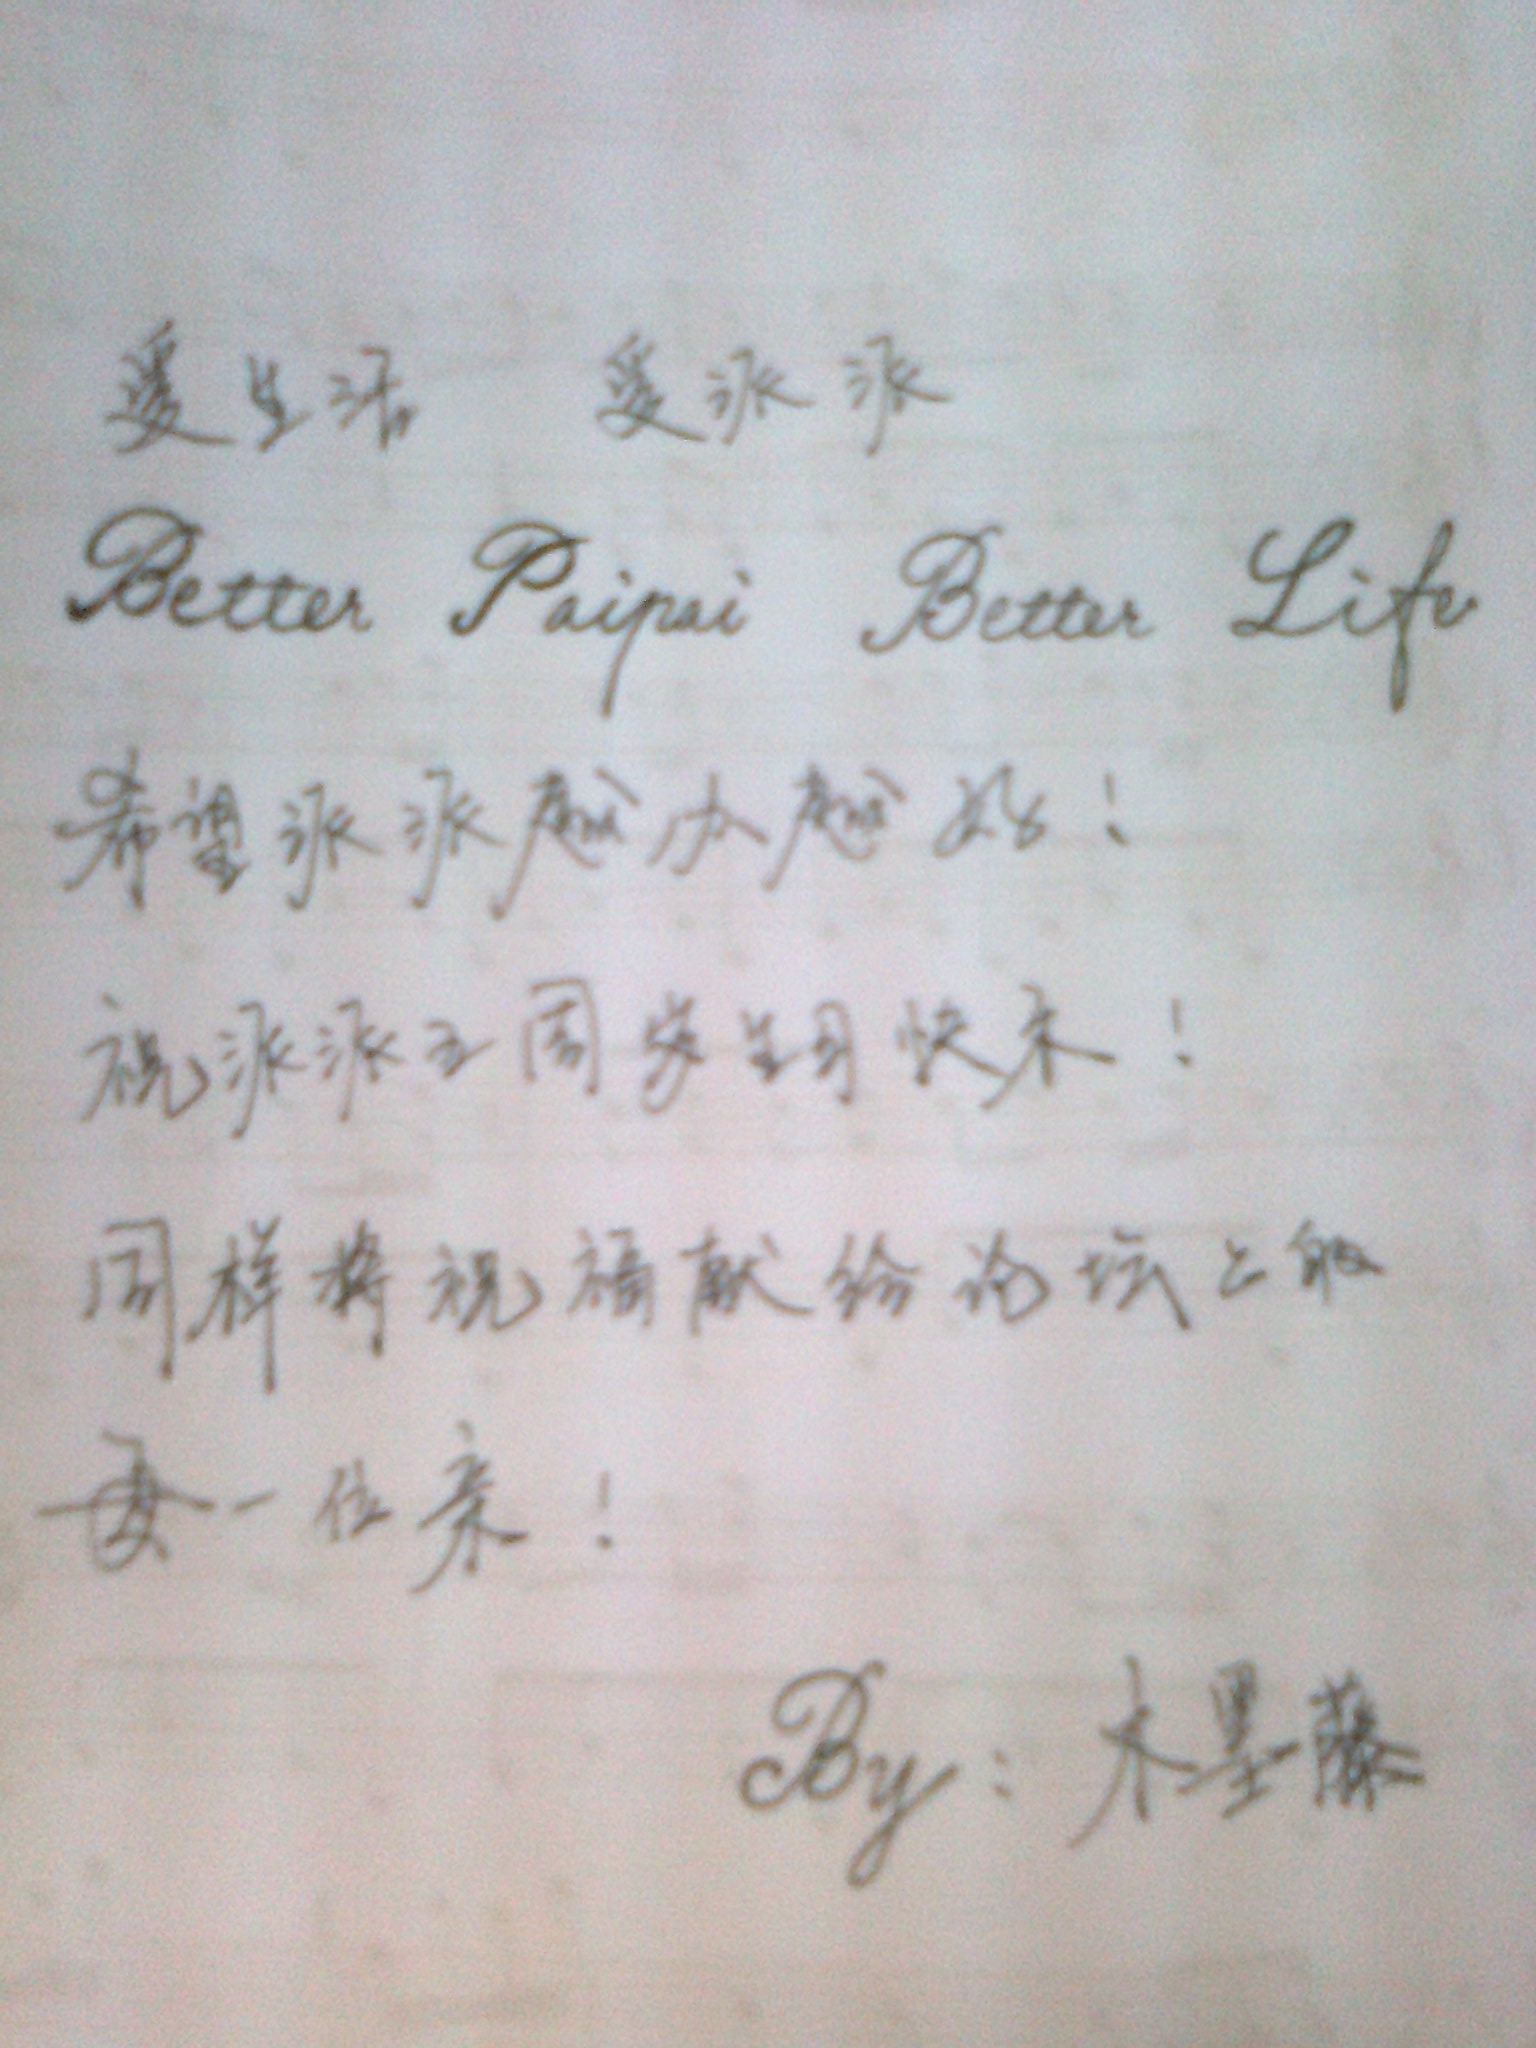 爱生活 爱派派
Better Paipai Better Life
希望派派越办越好！
祝派派五周岁生日快乐！
同样将祝福献给论坛上的
每一位亲！
By：木墨藤